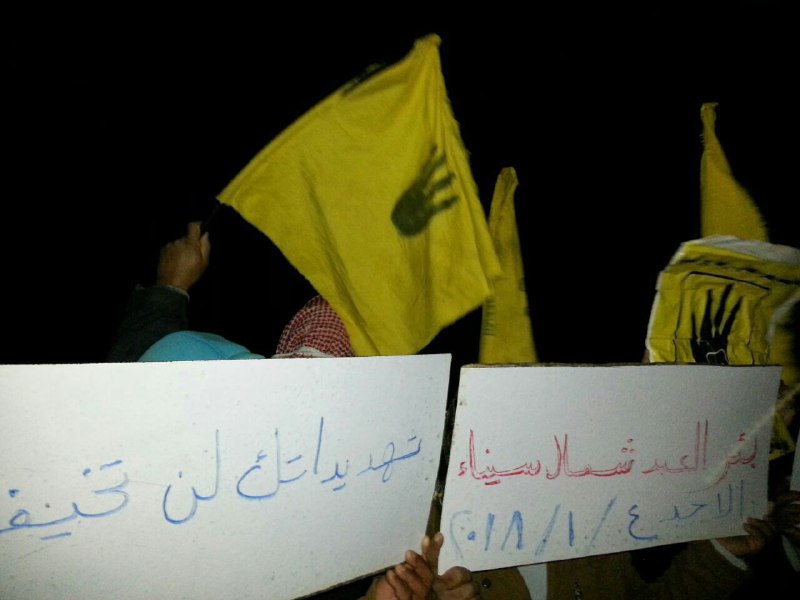 بئر العبد شمال سيناء
الاحد ٤/١/٢٠١٨
تهديداتك لن تخيف